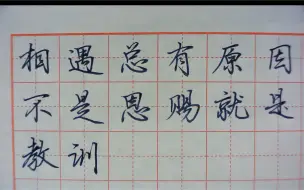 相遇总有原因
不是恩赐就是
教训